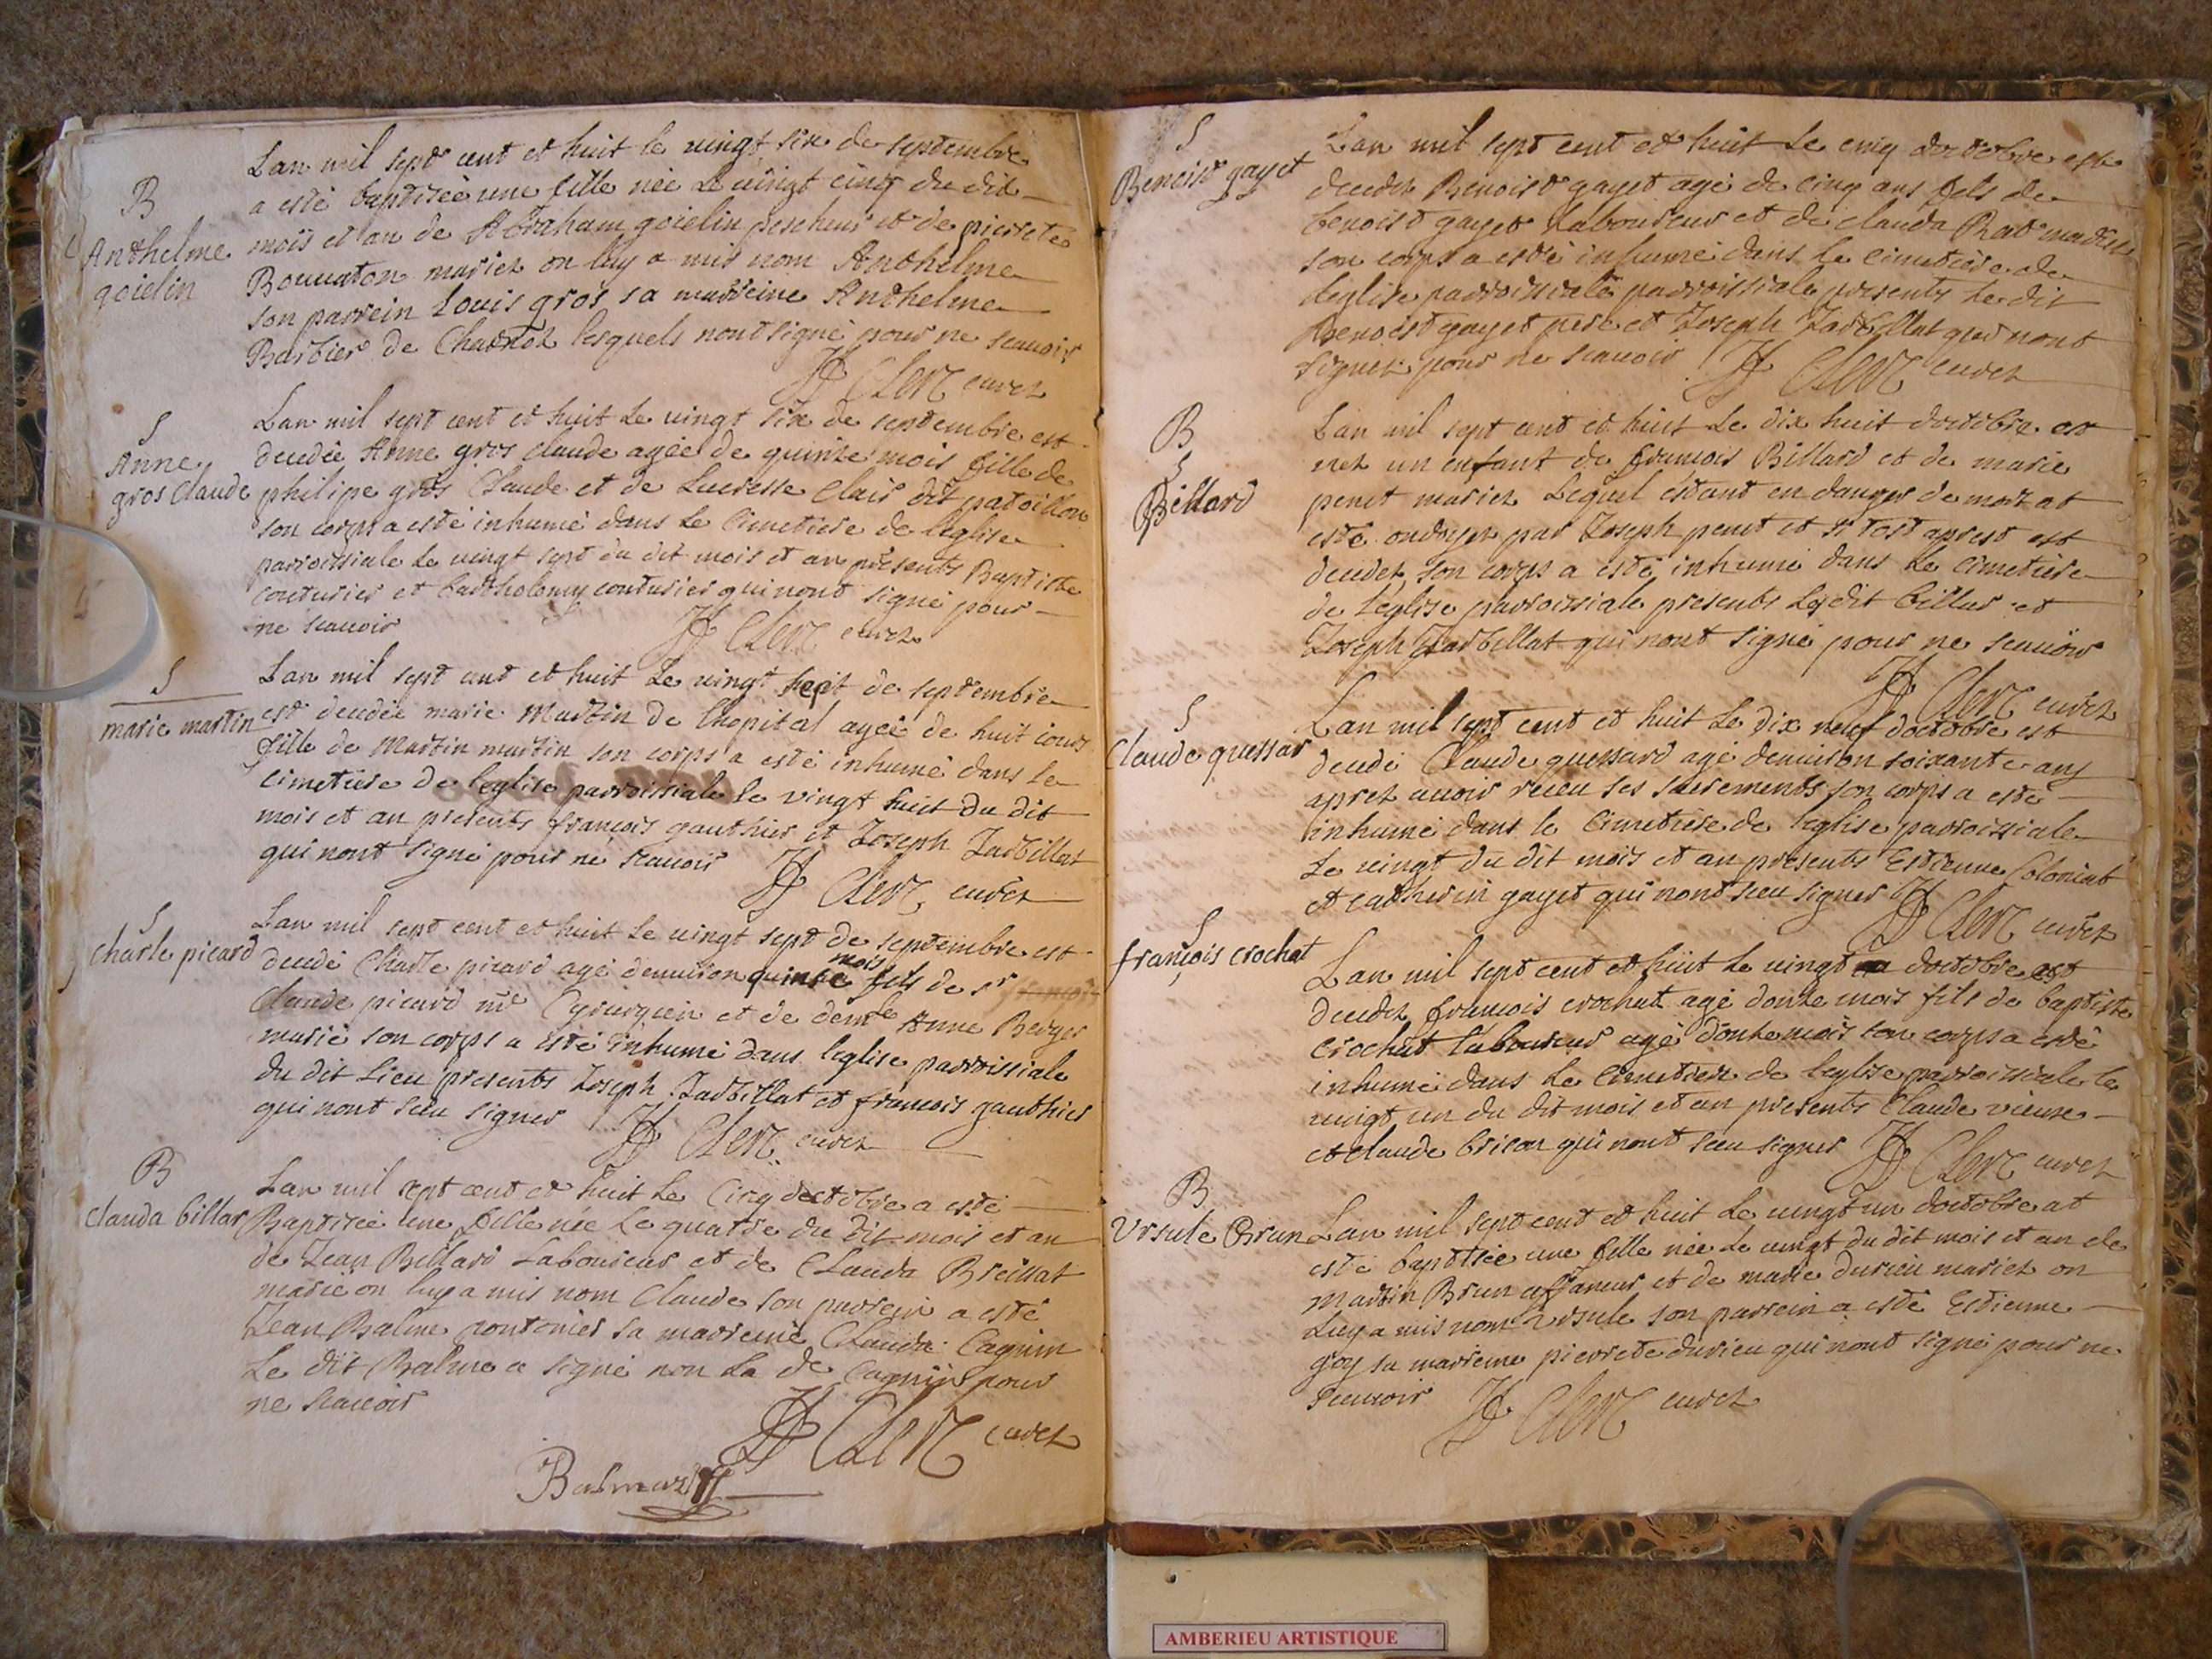 B
Anthelme
goielin
Lan mil sept cent et huit le uingt six de septembre
a esté baptisée une fille née Le uingt cinq du dit
mois et an de Abraham goielin pescheur et de pierrete
Bouuaton mariez on luy a mis nom Anthelme
son parrein Louis gros sa marreine Anthelme
Barbier de lesquels nont signé pour ne scauoir
Clerc curez
S
Anne
gros Claude
Lan mil sept cent et huit Le uingt six de septembre est
decedée Anne gros claude agée de quinze mois fille de
philipe gros Claude et de Lucresse Clair dit patoillon
son corps a esté inhumé dans Le Cimetiere de leglise
parroissiale Le uingt sept du dit mois et an presents Baptiste
couturier et bartholomy couturier qui nont signé pour
ne scauoir Clerc curez
S
marie martin
Lan mil sept cent et huit Le uingt sept de septembre
est decedée marie Martin de lhopital agée de huit iours
fille de Martin martin son corps a esté inhumé dans le
Cimetiere de leglise parroissiale le vingt huit du dit
mois et an presents françois gauthier et Joseph Jarbillat
qui nont signé pour ne scauoir Clerc curez
S
charle picard
Lan mil sept cent et huit le uingt sept de septembre est
decedé Charle picard agé denuiron quinse mois fils de sr
Claude picard mre Cyrurgien et de demlle Anne Berger
marié son corps a esté inhumé dans leglise parroissiale
du dit Lieu presents Joseph Jarbillat et françois gauthier
qui nont sceu signer Clerc curez
B
Clauda billar
Lan mil sept cent et huit Le Cinq doctobre a esté
Baptisée une fille née Le quatre du dit mois et an
de Jean Billard Laboureur et de Clauda Breillat
marié on luy a mis nom Claude son parrein a esté
Jean Balme pontonier sa marreine Clauda Cagnin
Le dit Balme a signé non La de Cagnin pour
ne scauoir
Clerc curez
Balmoz
S
Benoist gayet
Lan mil sept cent et huit Le cinq doctobre est
decedez Benoist gayet agé de cinq ans fils de
benoist gayet Laboureur et de clauda Rat mariez
son corps a esté inhumé dans le cimetiere de
leglise parroissiale parroissiale presents Le dit
Benoist gayet pere et Joseph Jarbillat qui nont
signez pour ne scauoir Clerc curez
B
S
Billard
Lan mil sept cent et huit Le dix huit doctobre est
nez un enfant de françois Billard et de marie
penet mariez Lequel estant en danger de mort at
esté ondoyez par Joseph penet et si tost aprest est
decedez son corps a esté inhumé dans Le Cimetiere
de leglise parroissiale presents Ledit billar et
Joseph Jarbillat qui nont signé pour ne scauoir
Clerc curez
S
Claude quessar
Lan mil sept cent et huit Le dix neuf doctobre est
decedé Claude quessard agé denuiron soixante ans
aprez auoir receu ses sacrements son corps a esté
inhumé dans le Cimetiere de leglise parroissiale
Le uingt du dit mois et an presents Estienne Coloniat
et catherin gayet qui nont sceu signer Clerc curez
S
françois crochat
Lan mil sept cent et huit Le uingt doctobre est
decedez françois crochat agé donze mois fils de baptiste
crochat laboureur agé donze mois son corps a esté
inhumé dans Le Cimetiere de leglise parroissiale le
uingt un du dit mois et an presents Claude vieux
et claude brison qui nont sceu signer Clerc curez
B
Vrsule Brun
Lan mil sept cent et huit Le uingt un doctobre at
esté baptisée une fille née Le uingt du dit mois et an de
Martin Brun affaneur et de marie durieu mariez on
Luy a mis nom Vrsule son parrein a esté Estienne
goy sa marreine pierrete durieu qui nont signé pour ne
scauoir Clerc curez
AMBERIEU ARTISTIQUE